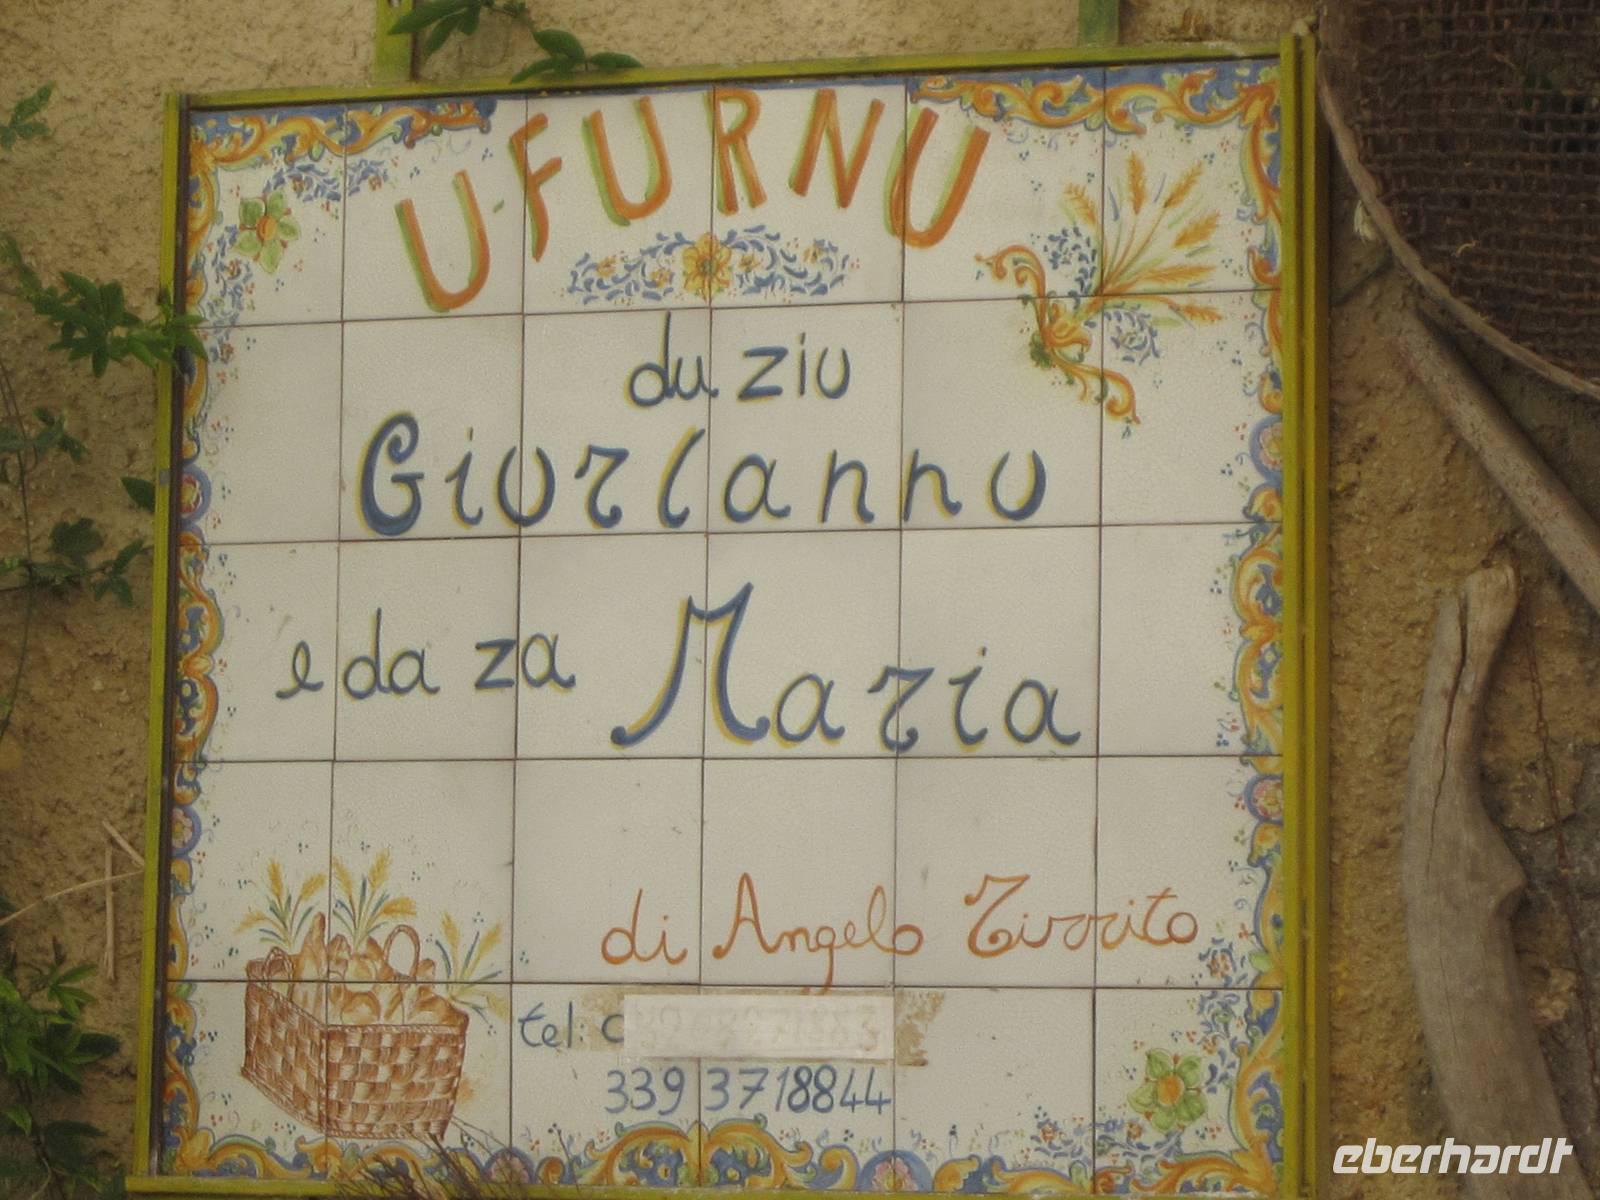 U·FURNU
du ziu
Giurlannu
e da za Maria
di Angelo Tirrito
tel:
339 3718844
eberhardt